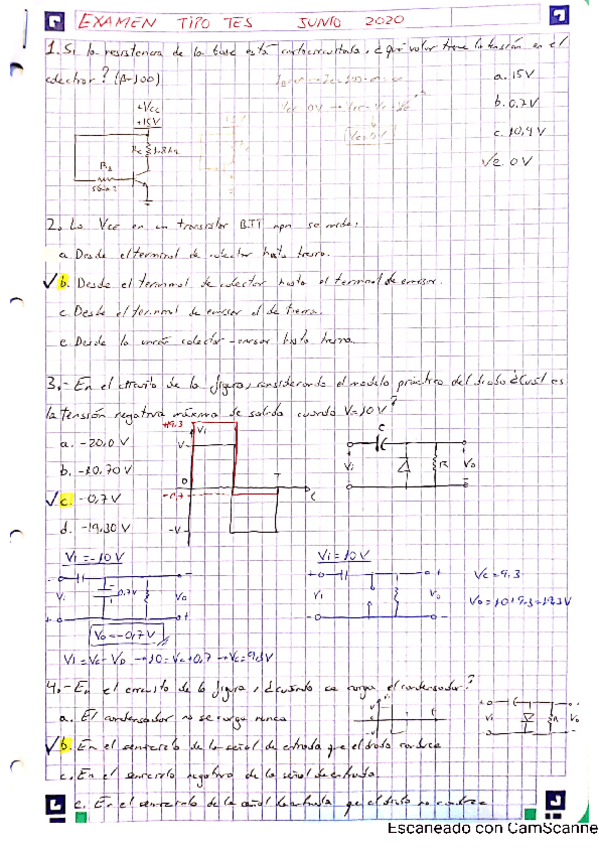 EXAMEN TIPO TES JUNIO 2020
1. Si la resistencia de la base está cortocircuitada, ¿qué valor tiene la tensión en el
colector? (β=100)
a. 15V
b. 0,7V
c. 10,4V
e. 0V
+Vcc
+15V
Rc
2. La Vce en un transistor BJT npn se mide:
a. Desde el terminal de colector hasta tierra.
b. Desde el terminal de colector hasta el terminal de emisor.
c. Desde el terminal de emisor al de tierra.
e. Desde la unión colector-emisor hasta tierra.
3.- En el circuito de la figura, considerando el modelo práctico del diodo ¿Cuál es
la tensión negativa máxima de salida cuando V=10V?
a. -20,0 V
b. -10,70 V
c. -0,7 V
d. -19,30 V
+9,3
Vi
V
0
-0,7
-V
T
t
C
Vi
R
Vo
Vi = -10V
Vi = 10V
0,7V
Vo
Vo = -0,7V
Vi
Vo
Vc = 9,3
Vo = 10+9,3 = 19,3V
Vi = Vc - VD → 10 = Vc + 0,7 → Vc = 9,3V
4.- En el circuito de la figura, ¿cuándo se carga el condensador?
a. El condensador no se carga nunca
b. En el semiciclo de la señal de entrada que el diodo conduce
c. En el semiciclo negativo de la señal de entrada.
e. En el semiciclo de la señal de entrada que el diodo no conduce
Vi
R
Vo
Escaneado con CamScanne